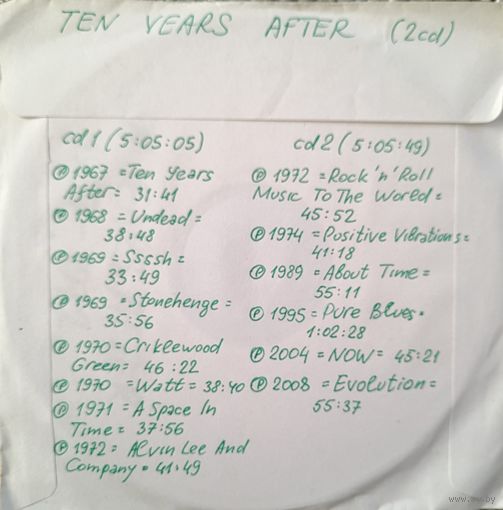 TEN YEARS AFTER (2cd)
cd1 (5:05:05)
℗ 1967 =Ten Years
After= 31:41
℗ 1968 =Undead=
38:48
℗ 1969 =Ssssh=
33:49
℗ 1969 =Stonehenge=
35:56
℗ 1970 =Criklewood
Green= 46:22
℗ 1970 =Watt= 38:40
℗ 1971 =A Space In
Time= 37:56
℗ 1972= Alvin Lee And
Company= 41:49
cd2 (5:05:49)
℗ 1972 =Rock'n'Roll
Music To The World=
45:52
℗ 1974 =Positive Vibrations=
41:18
℗ 1989 =About Time=
55:11
℗ 1995 =Pure Blues=
1:02:28
℗ 2004 =NOW= 45:21
℗ 2008 =Evolution=
55:37
www.ay.by